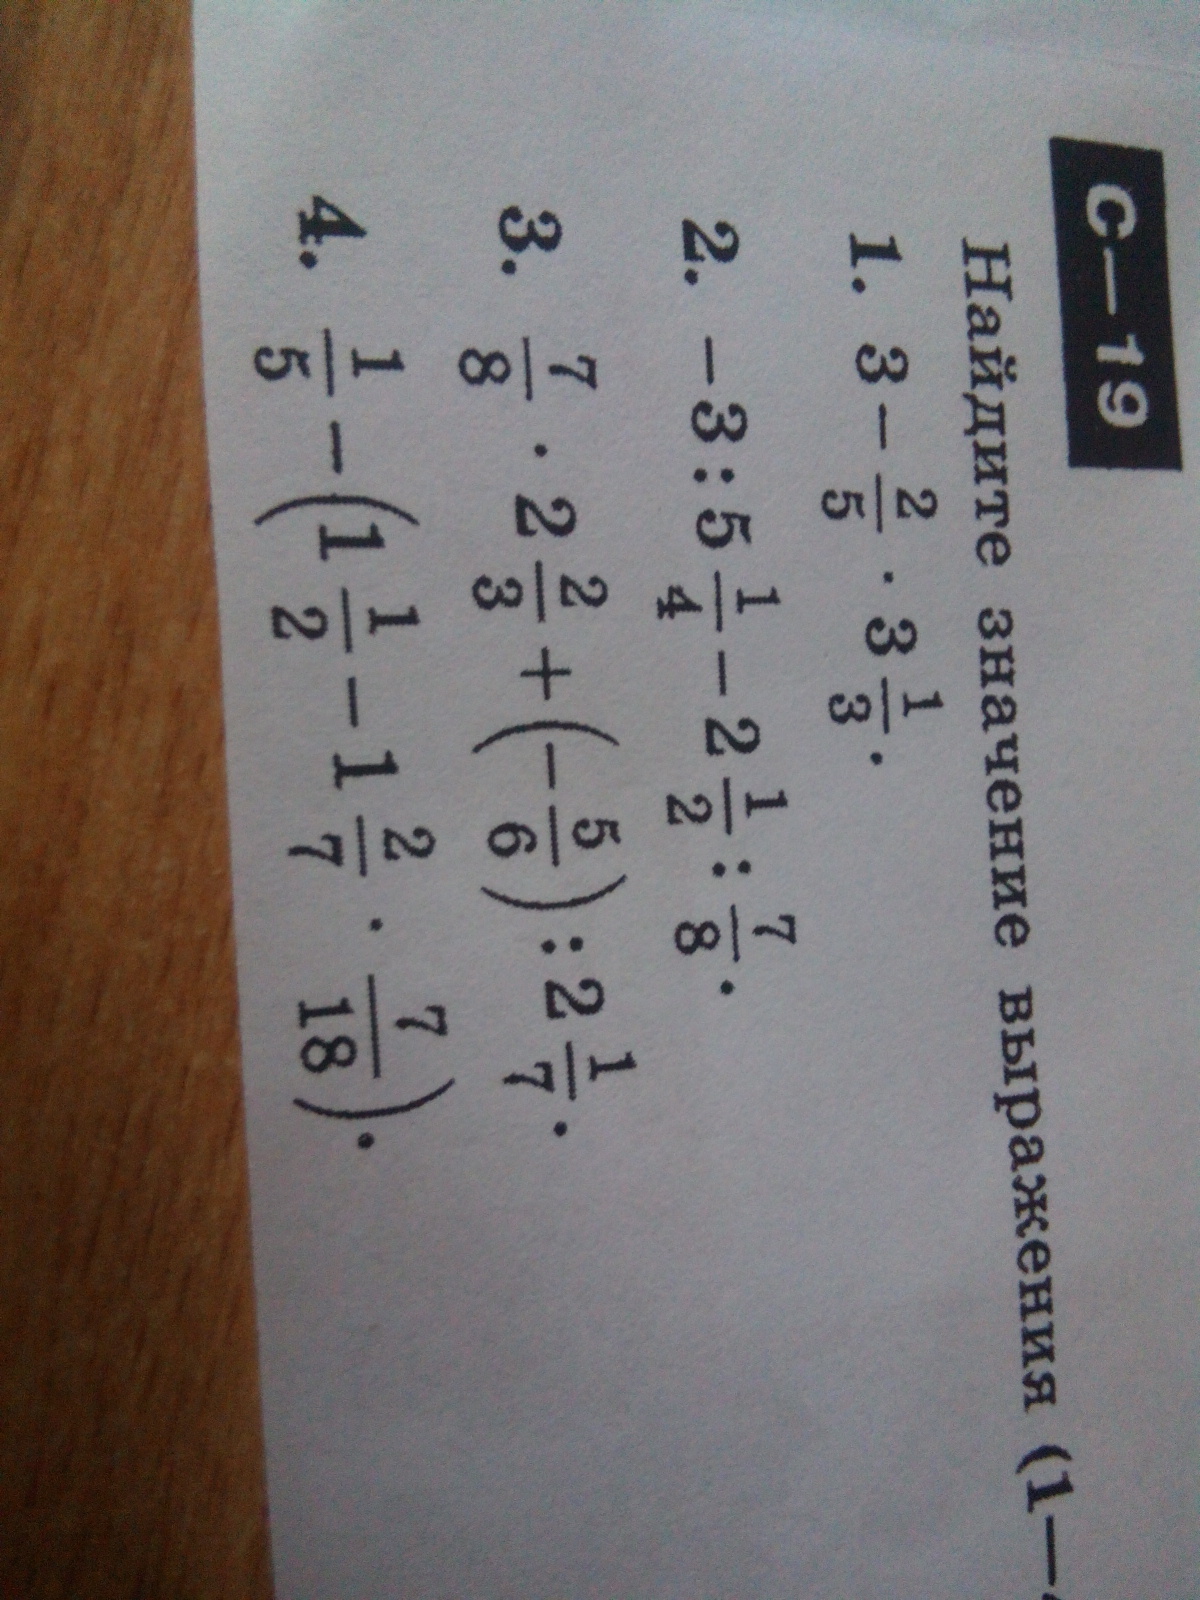 С—19
Найдите значение выражения (1—
1. 3 − 2/5 · 3 1/3.
2. −3 : 5 1/4 − 2 1/2 : 7/8.
3. 7/8 · 2 2/3 + (−5/6) : 2 1/7.
4. 1/5 − (1 1/2 − 1 2/7 · 7/18).